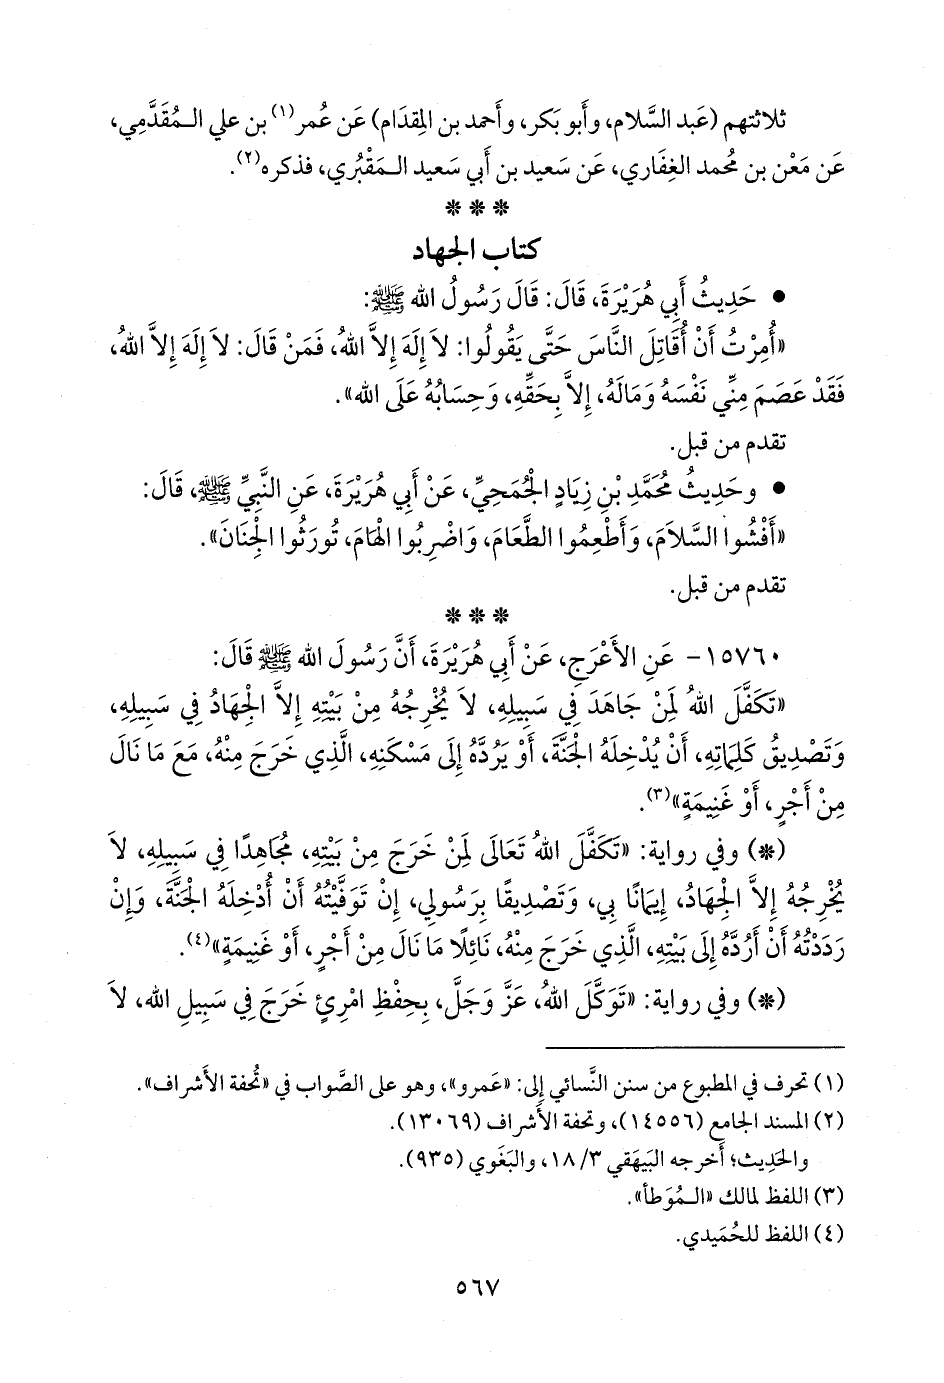 ثلاثتهم (عَبد السَّلام، وأَبو بَكر، وأَحمد بن المِقدَام) عَن عُمر(١) بن علي الـمُقَدَّمِي،
عَن مَعْن بن مُحمد الغِفَاري، عَن سَعيد بن أَبي سَعيد الـمَقْبُري، فذكره(٢).
* * *
كتاب الجهاد
• حَدِيثُ أَبِي هُرَيْرَةَ، قَالَ: قَالَ رَسُولُ الله ﷺ:
«أُمِرْتُ أَنْ أُقَاتِلَ النَّاسَ حَتَّى يَقُولُوا: لاَ إِلَهَ إِلاَّ اللهُ، فَمَنْ قَالَ: لاَ إِلَهَ إِلاَّ اللهُ،
فَقَدْ عَصَمَ مِنِّي نَفْسَهُ وَمَالَهُ، إِلاَّ بِحَقِّهِ، وَحِسَابُهُ عَلَى الله».
تقدم من قبل.
• وحَدِيثُ مُحَمَّدِ بْنِ زِيَادٍ الْجُمَحِيِّ، عَنْ أَبِي هُرَيْرَةَ، عَنِ النَّبِيِّ ﷺ، قَالَ:
«أَفْشُوا السَّلاَمَ، وَأَطْعِمُوا الطَّعَامَ، وَاضْرِبُوا الْهَامَ، تُورَثُوا الْجِنَانَ».
تقدم من قبل.
* * *
١٥٧٦٠- عَنِ الأَعْرَجِ، عَنْ أَبِي هُرَيْرَةَ، أَنَّ رَسُولَ الله ﷺ قَالَ:
«تَكَفَّلَ اللهُ لِمَنْ جَاهَدَ فِي سَبِيلِهِ، لاَ يُخْرِجُهُ مِنْ بَيْتِهِ إِلاَّ الْجِهَادُ فِي سَبِيلِهِ،
وَتَصْدِيقُ كَلِمَاتِهِ، أَنْ يُدْخِلَهُ الْجَنَّةَ، أَوْ يَرُدَّهُ إِلَى مَسْكَنِهِ، الَّذِي خَرَجَ مِنْهُ، مَعَ مَا نَالَ
مِنْ أَجْرٍ، أَوْ غَنِيمَةٍ»(٣).
(*) وفي رواية: «تَكَفَّلَ اللهُ تَعَالَى لِمَنْ خَرَجَ مِنْ بَيْتِهِ، مُجَاهِدًا فِي سَبِيلِهِ، لاَ
يُخْرِجُهُ إِلاَّ الْجِهَادُ، إِيمَانًا بِي، وَتَصْدِيقًا بِرَسُولِي، إِنْ تَوَفَّيْتُهُ أَنْ أُدْخِلَهُ الْجَنَّةَ، وَإِنْ
رَدَدْتُهُ أَنْ أَرُدَّهُ إِلَى بَيْتِهِ، الَّذِي خَرَجَ مِنْهُ، نَائِلًا مَا نَالَ مِنْ أَجْرٍ، أَوْ غَنِيمَةٍ»(٤).
(*) وفي رواية: «تَوَكَّلَ اللهُ، عَزَّ وَجَلَّ، بِحِفْظِ امْرِئٍ خَرَجَ فِي سَبِيلِ الله، لاَ
(١) تحرف في المطبوع من سنن النَّسائي إلى: «عَمرو»، وهو على الصَّواب في «تُحفة الأَشراف».
(٢) المسند الجامع (١٤٥٥٦)، وتحفة الأَشراف (١٣٠٦٩).
والحَدِيث؛ أَخرجه البَيهَقي ٣/ ١٨، والبَغَوي (٩٣٥).
(٣) اللفظ لمالك «الـمُوَطأ».
(٤) اللفظ للحُمَيدي.
٥٦٧